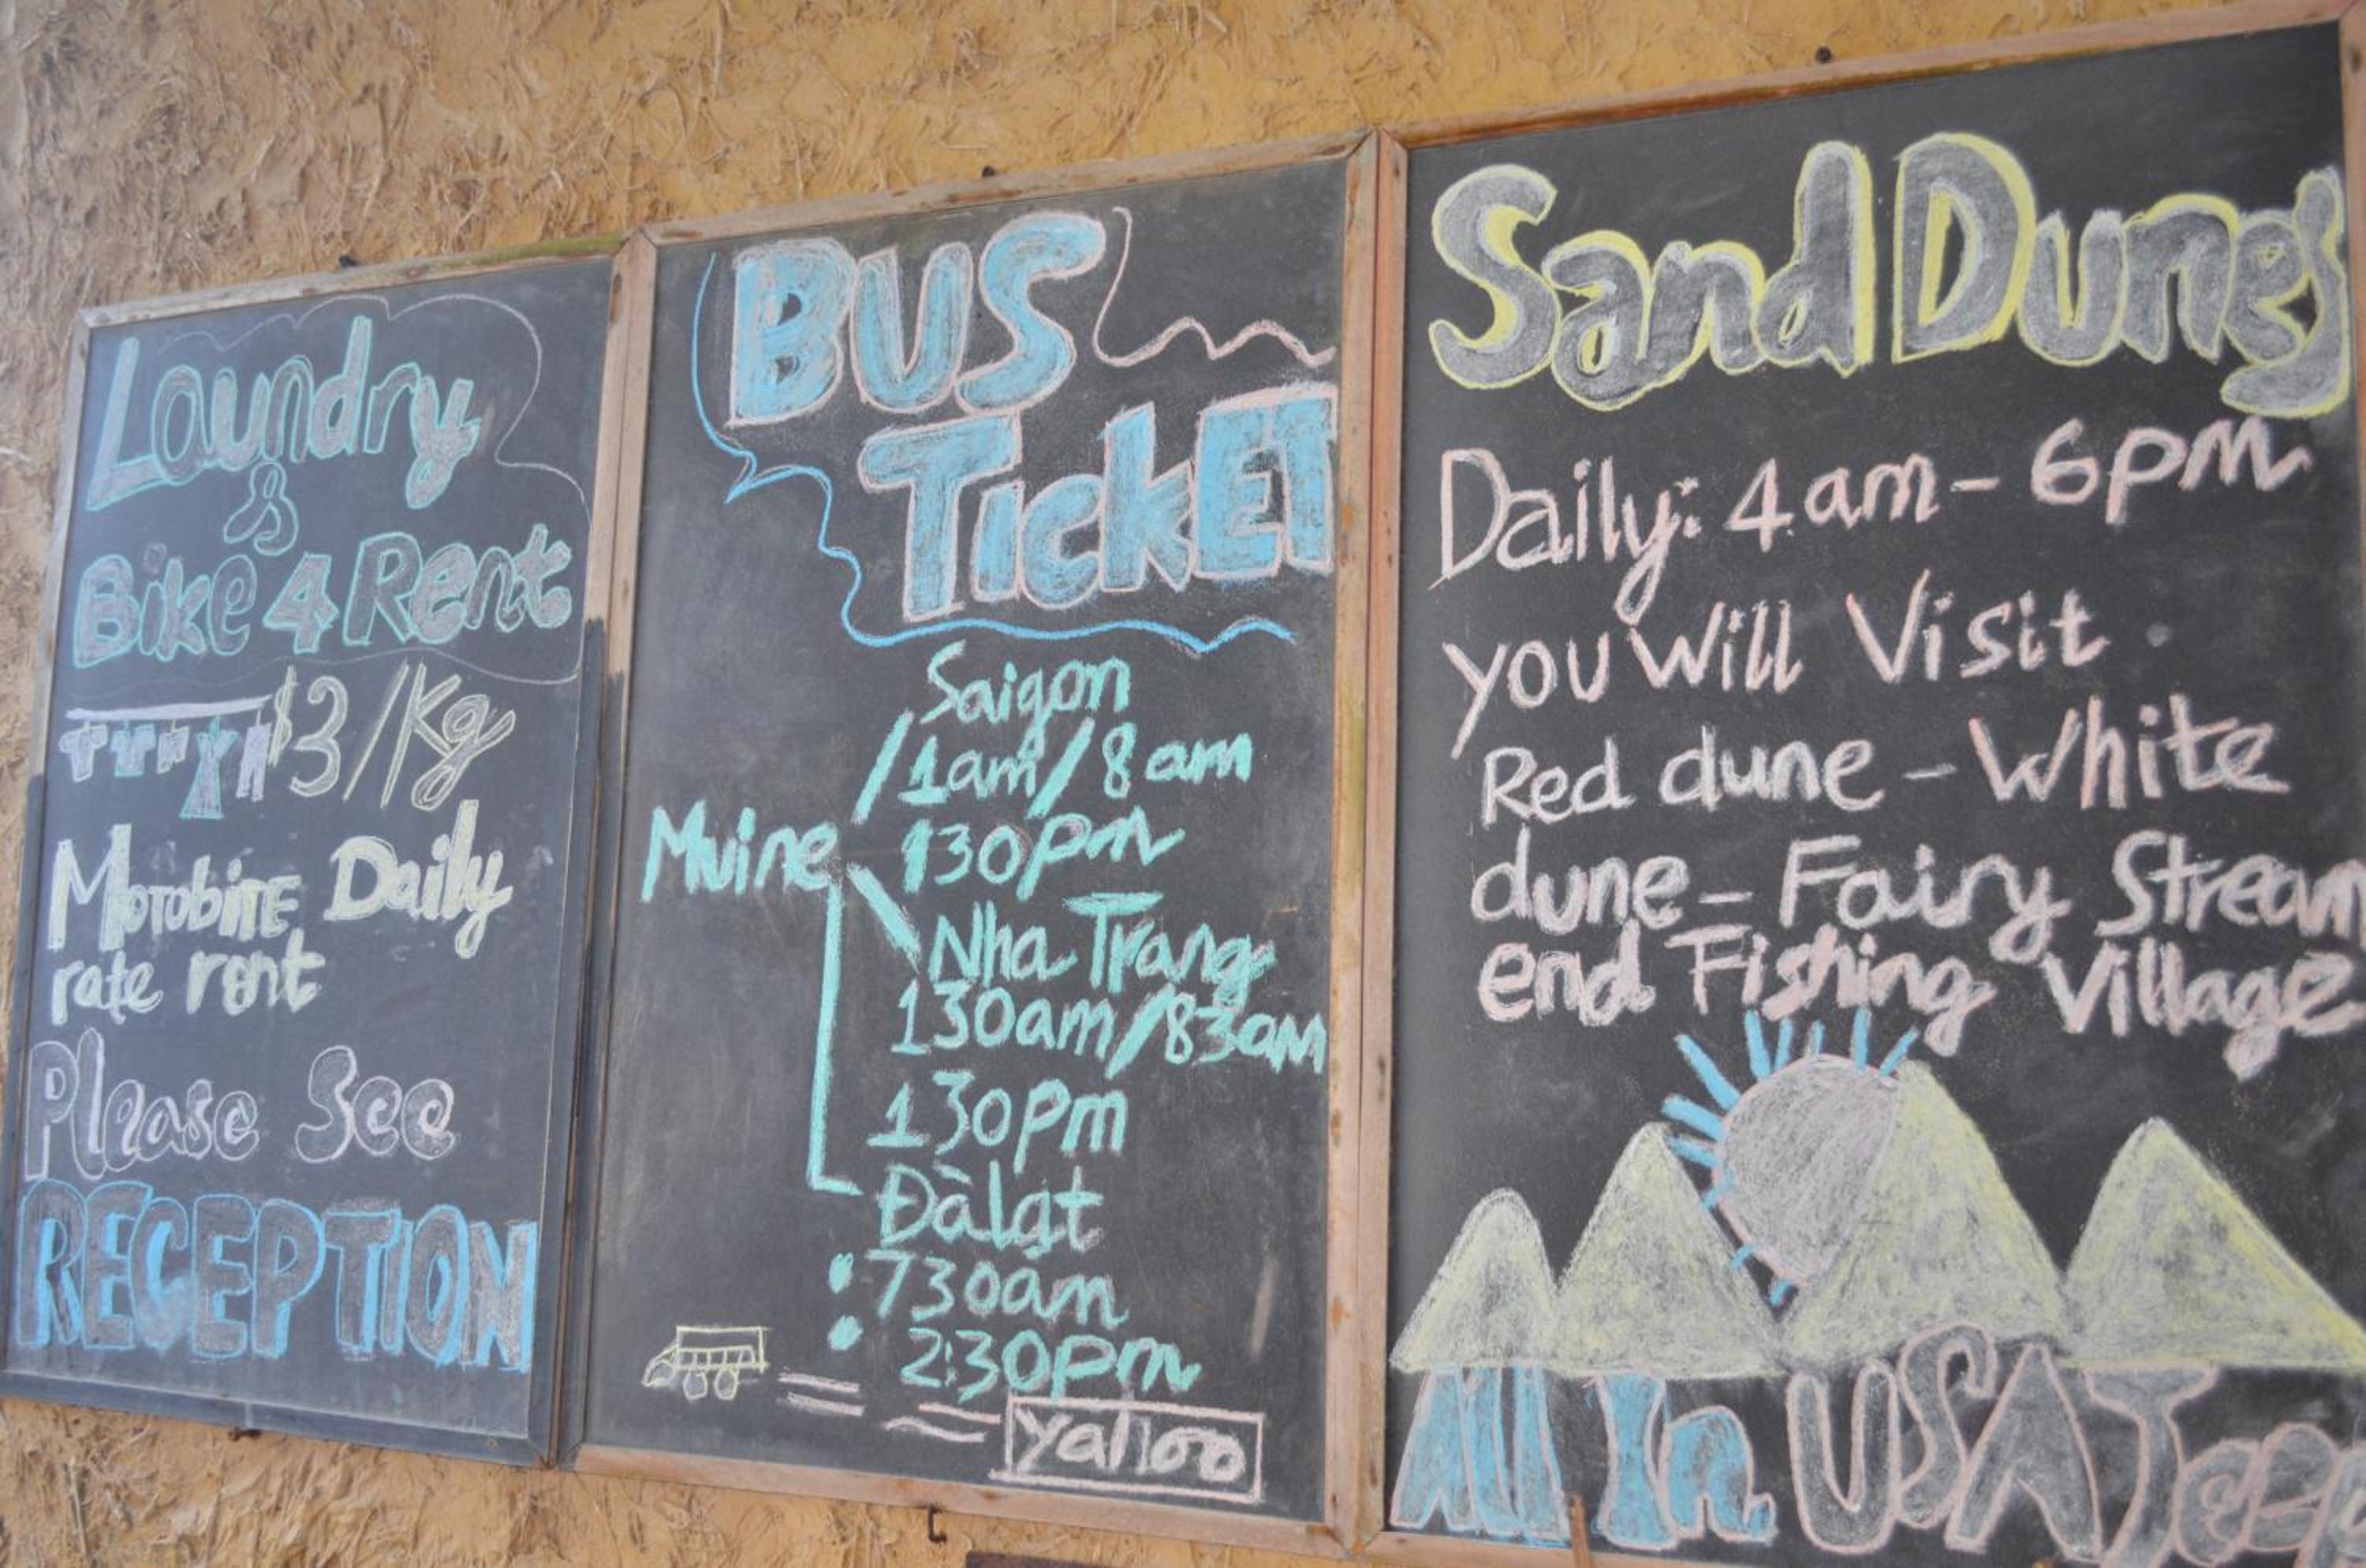 Laundry
&
Bike 4 Rent
$3/Kg
Motobike Daily
rate rent
Please See
RECEPTION
BUS
TickET
Saigon
/1am/8am
Muine 130pm
Nha Trang
130am/830am
130pm
Đàlạt
730am
2:30pm
yalloo
Sand Dunes
Daily: 4am - 6pm
you Will Visit
Red dune - White
dune - Fairy Stream
end Fishing Village
All In USA Jeep